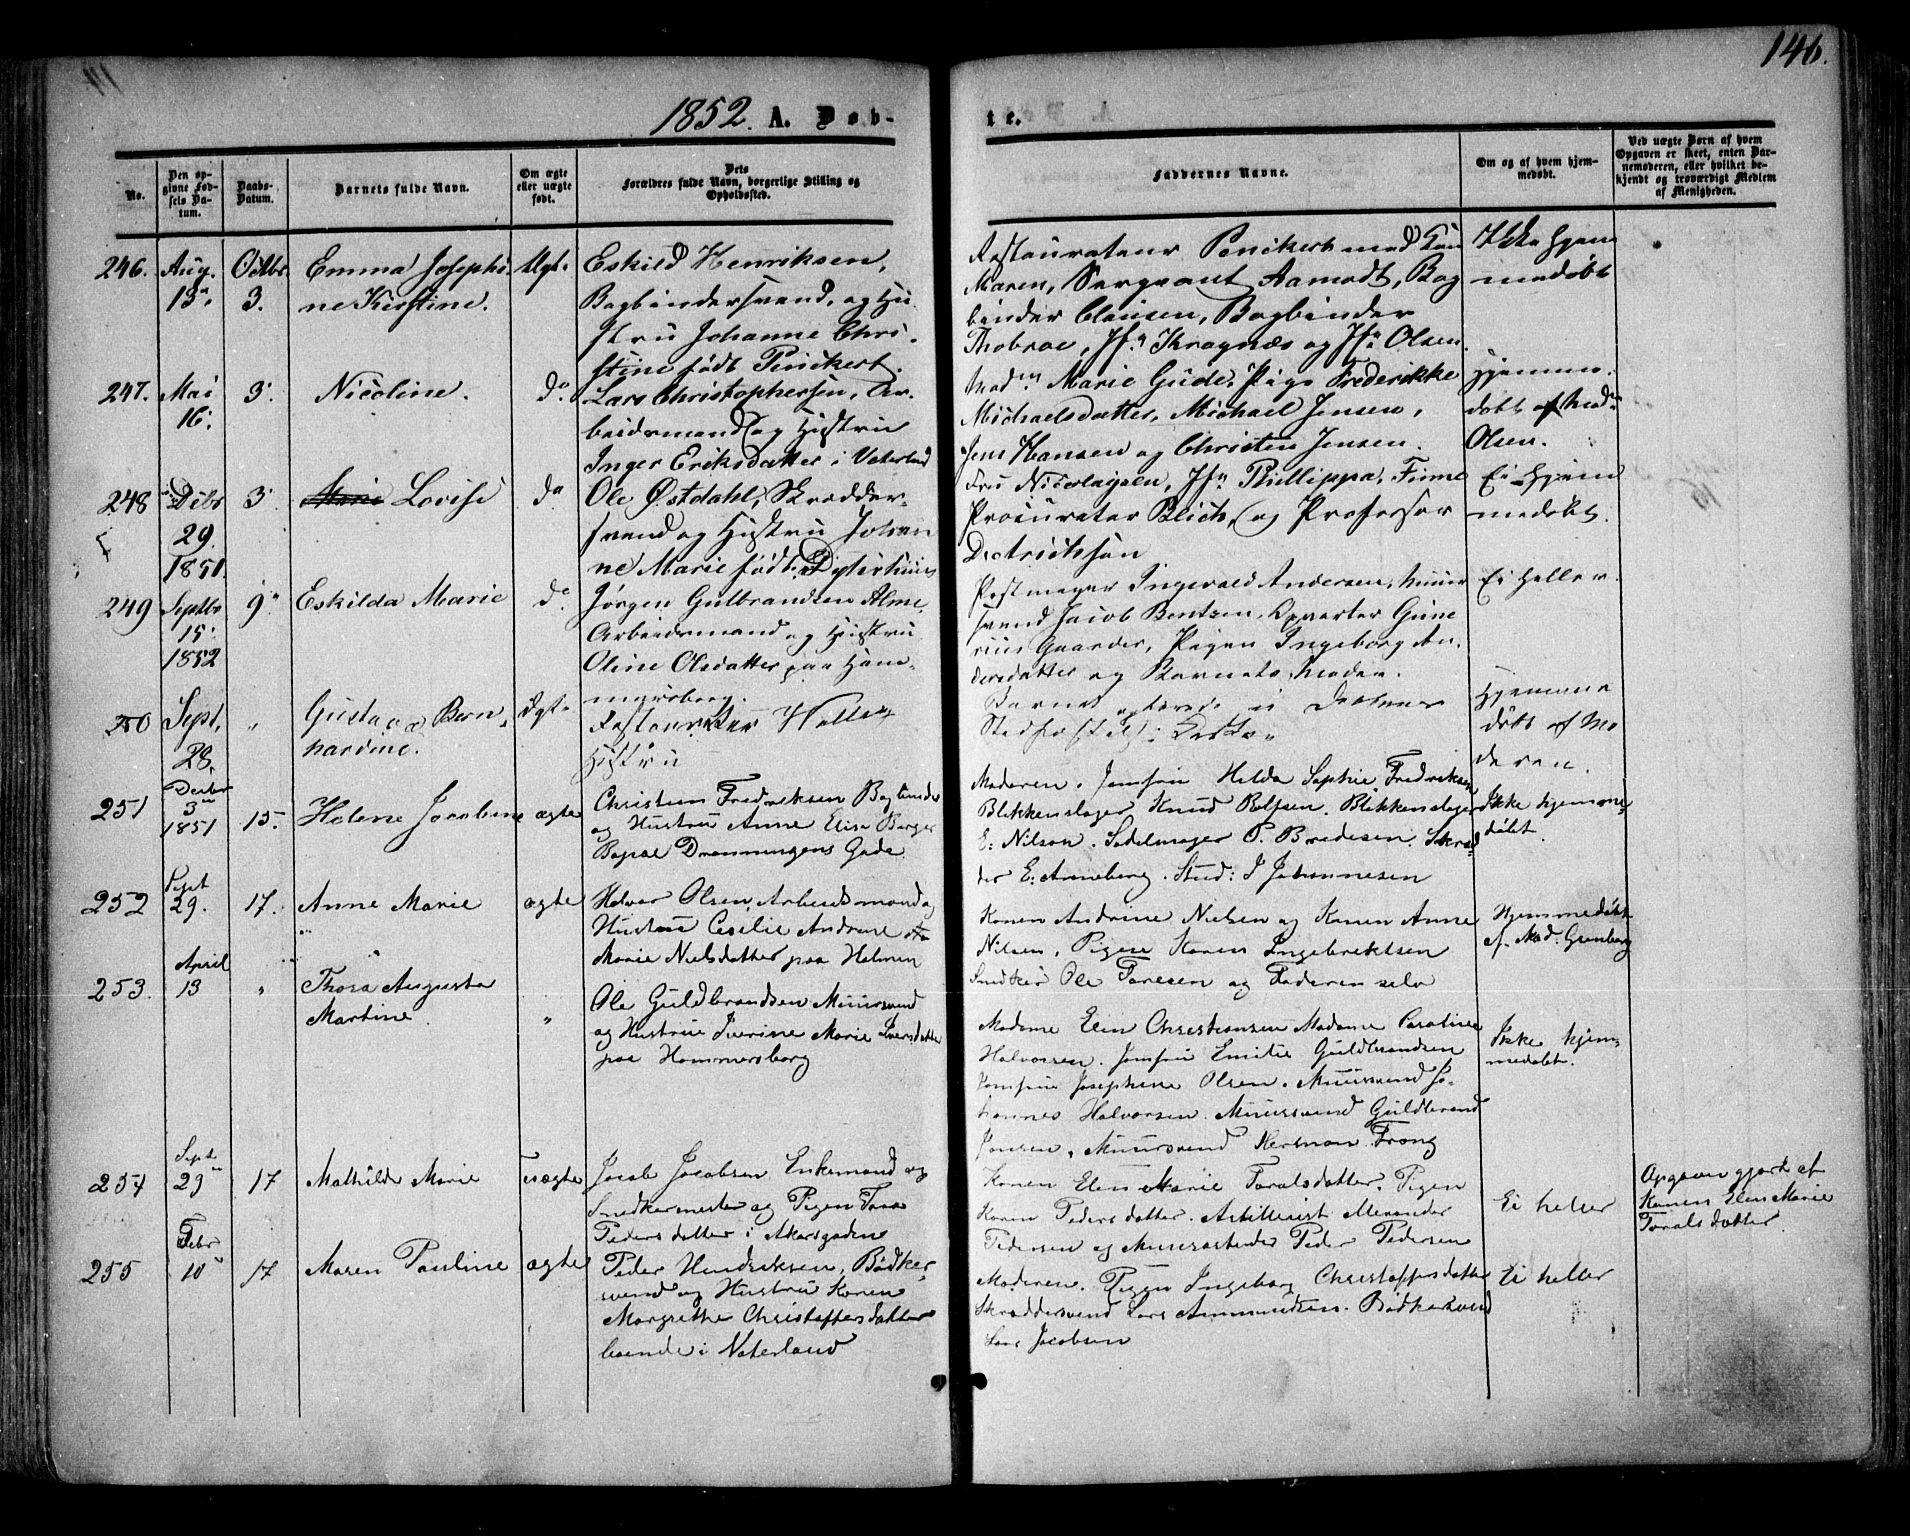 146.
1852. A. Døb-
te.
No.
Den op-
givne Fød-
sels Da-
tum.
Daabs-
Datum.
Barnets fulde Navn.
Om ægte
eller uægte
født.
Dets
Forældres fulde Navn, borgerlige Stilling og
Opholdssted.
Faddernes Navne.
Om og af hvem hjem-
medøbt.
Ved uægte Børn af hvem
Opgaven er skeet, enten Bar-
nemoderen, eller hvilket be-
kjendt og troværdigt Medlem
af Menigheden.
246.
Aug.
13.
Octbr.
3.
Emma Josephi-
ne Kirstine.
Ægt.
Eskild Henriksen,
Bogbindersvend, og Hu-
stru Johanne Chri-
stine født Penckert.
Restaurateur Penckert med Kone
Maren, Sergeant Aamodt, Bog
binder Clausen, Bogbinder
Thobroe, Jfr. Kragnæs og Jfr. Olsen.
Ikke hjem
medøbt
247.
Mai
16.
3.
Nicoline.
Do.
Lars Christophersen, Ar-
beidsmand og Hustru
Inger Eriksdatter i Vaterland
Mad. Marie Gude, Pige Frederikke
Michaelsdatter, Michael Jensen,
Jens Hansen og Christen Jensen.
Hjemme-
døbt af Mad.
Olsen.
248
Debr
29.
1851.
3.
Marie Lovise
Do.
Ole Østdahl, Skrædder-
svend og Hustru Johan
ne Marie født
Fru Nicolaysen, Jfr. Phillippa, Finne
Procurator Blich, og Professor
Dietrichson
Ei hjem
medøbt.
249
Septbr
15.
1852
9.
Eskilda Marie
Do.
Jørgen Gulbrandsen Alme,
Arbeidsmand og Hustru
Oline Olsdatter paa Ham-
mersborg.
Pestmager Ingevald Andersen, Muur
svend Jacob Bentsen, Opvarter Gune
rius Gaarder, Pigen Ingeborg An-
dersdatter og Barnets Moder.
Ei heller.
250
Sept.
28.
"
Gustava Bern-
hardine.
Ægt.
Restaurateur
Hustru
Barnet
Hjemme
døbt af Mo
deren.
251
Decbr
3
1851
15.
Helene Jacobine
ægte
Christian Fredriksen Bogbinder
og Hustru Anne Elise Borger
Bopæl Dronningens Gade.
Moderen. Jomfru Hilda Sophie Fredriksen
Blikkenslager Knud Rolfsen. Blikkenslager
E: Nilson. Sadelmager P. Bredesen. Skræd
der E: Anneberg. Stud: J Johannesen
Ikke hjemme-
døbt.
252
Sept
29.
17.
Anne Marie
ægte
Halvor Olsen, Arbeidsmand og
Hustru Cecilie Andrine
Marie Nielsdatter paa Holmen
Konen Andrine Nielsen og Konen Anne
Nilsen. Pigen Karen Ingebrektsen
Snedker Ole Toresen og Faderen selv
Hjemmedøbt
af Mad: Grønborg
253.
April
13
"
Thora Augusta
Martine.
"
Ole Guldbrandsen Muursvend
og Hustrue Severine Marie Larsdatter
paa Hammersborg
Madame Elen Christiansen Madame Caroline
Halvorsen. Jomfru Emilie Guldbrandsen
Jomfrue Josephine Olsen. Muursvend Jo-
hannes Halvorsen. Muursvend Guldbrand
Jonsen, Muursvend Herman Frong
Ikke hjem-
medøbt.
254
Sept
29
17
Mathilde Marie
uægte
Jacob Jacobsen Enkemand og
Snedkermester og Pigen Tora
Peders datter i Akersgaden
Konen Elen Marie Toralsdatter. Pigen
Karen Peders datter. Artillerist Alexander
Pedersen og Muurarbeider Peder Pedersen
Ei heller
Opgaven gjort af
Konen Elen Marie
Torals datter.
255
Febr
10
17
Maren Pauline
ægte
Peder Hendriksen, Bødker-
svend og Hustru Karen
Margrethe Christoffersdatter
boende i Vaterland
Moderen. Pigen Ingeborg Christoffersdatter
Skræddersvend Lars Ammundsen. Bødkersvend
Lars Jacobsen
Ei heller